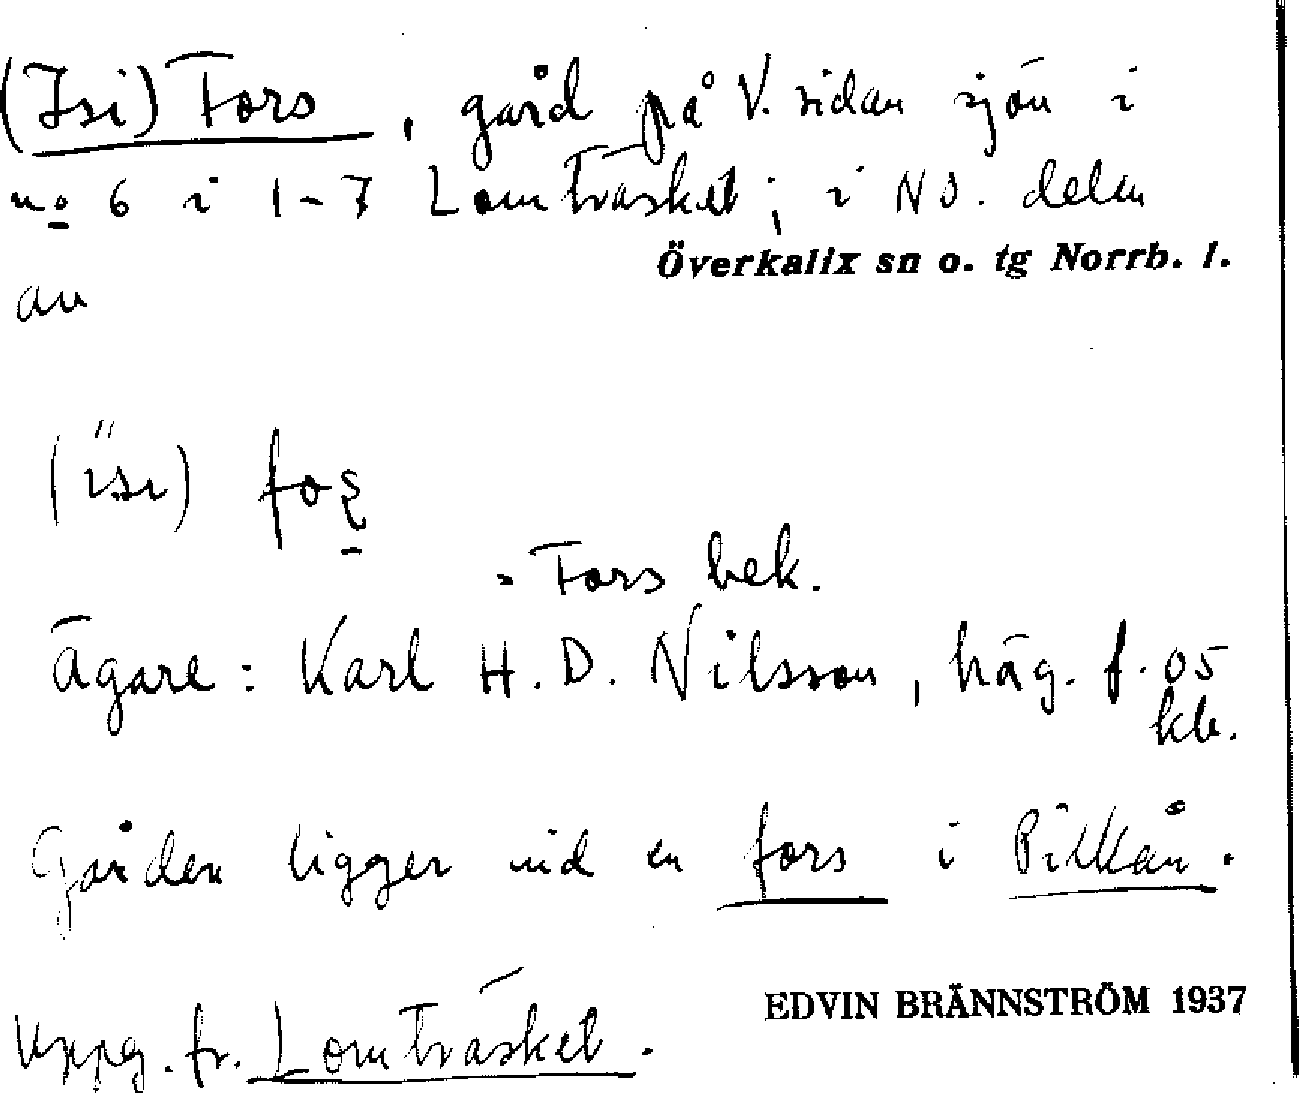 (Isi) Fors, gård på V. sidan sjön i
no 6 i 1-7 Lomträsket; i NO. delen
Överkalix sn o. tg Norrb. l.
av
(ïsi) fos̱
= Fors bek.
Ägare: Karl H. D. Nilsson, häg. f. 05
Gården ligger vid en fors i Pilkån.
EDVIN BRÄNNSTRÖM 1937
Uppg. fr. Lomträsket.